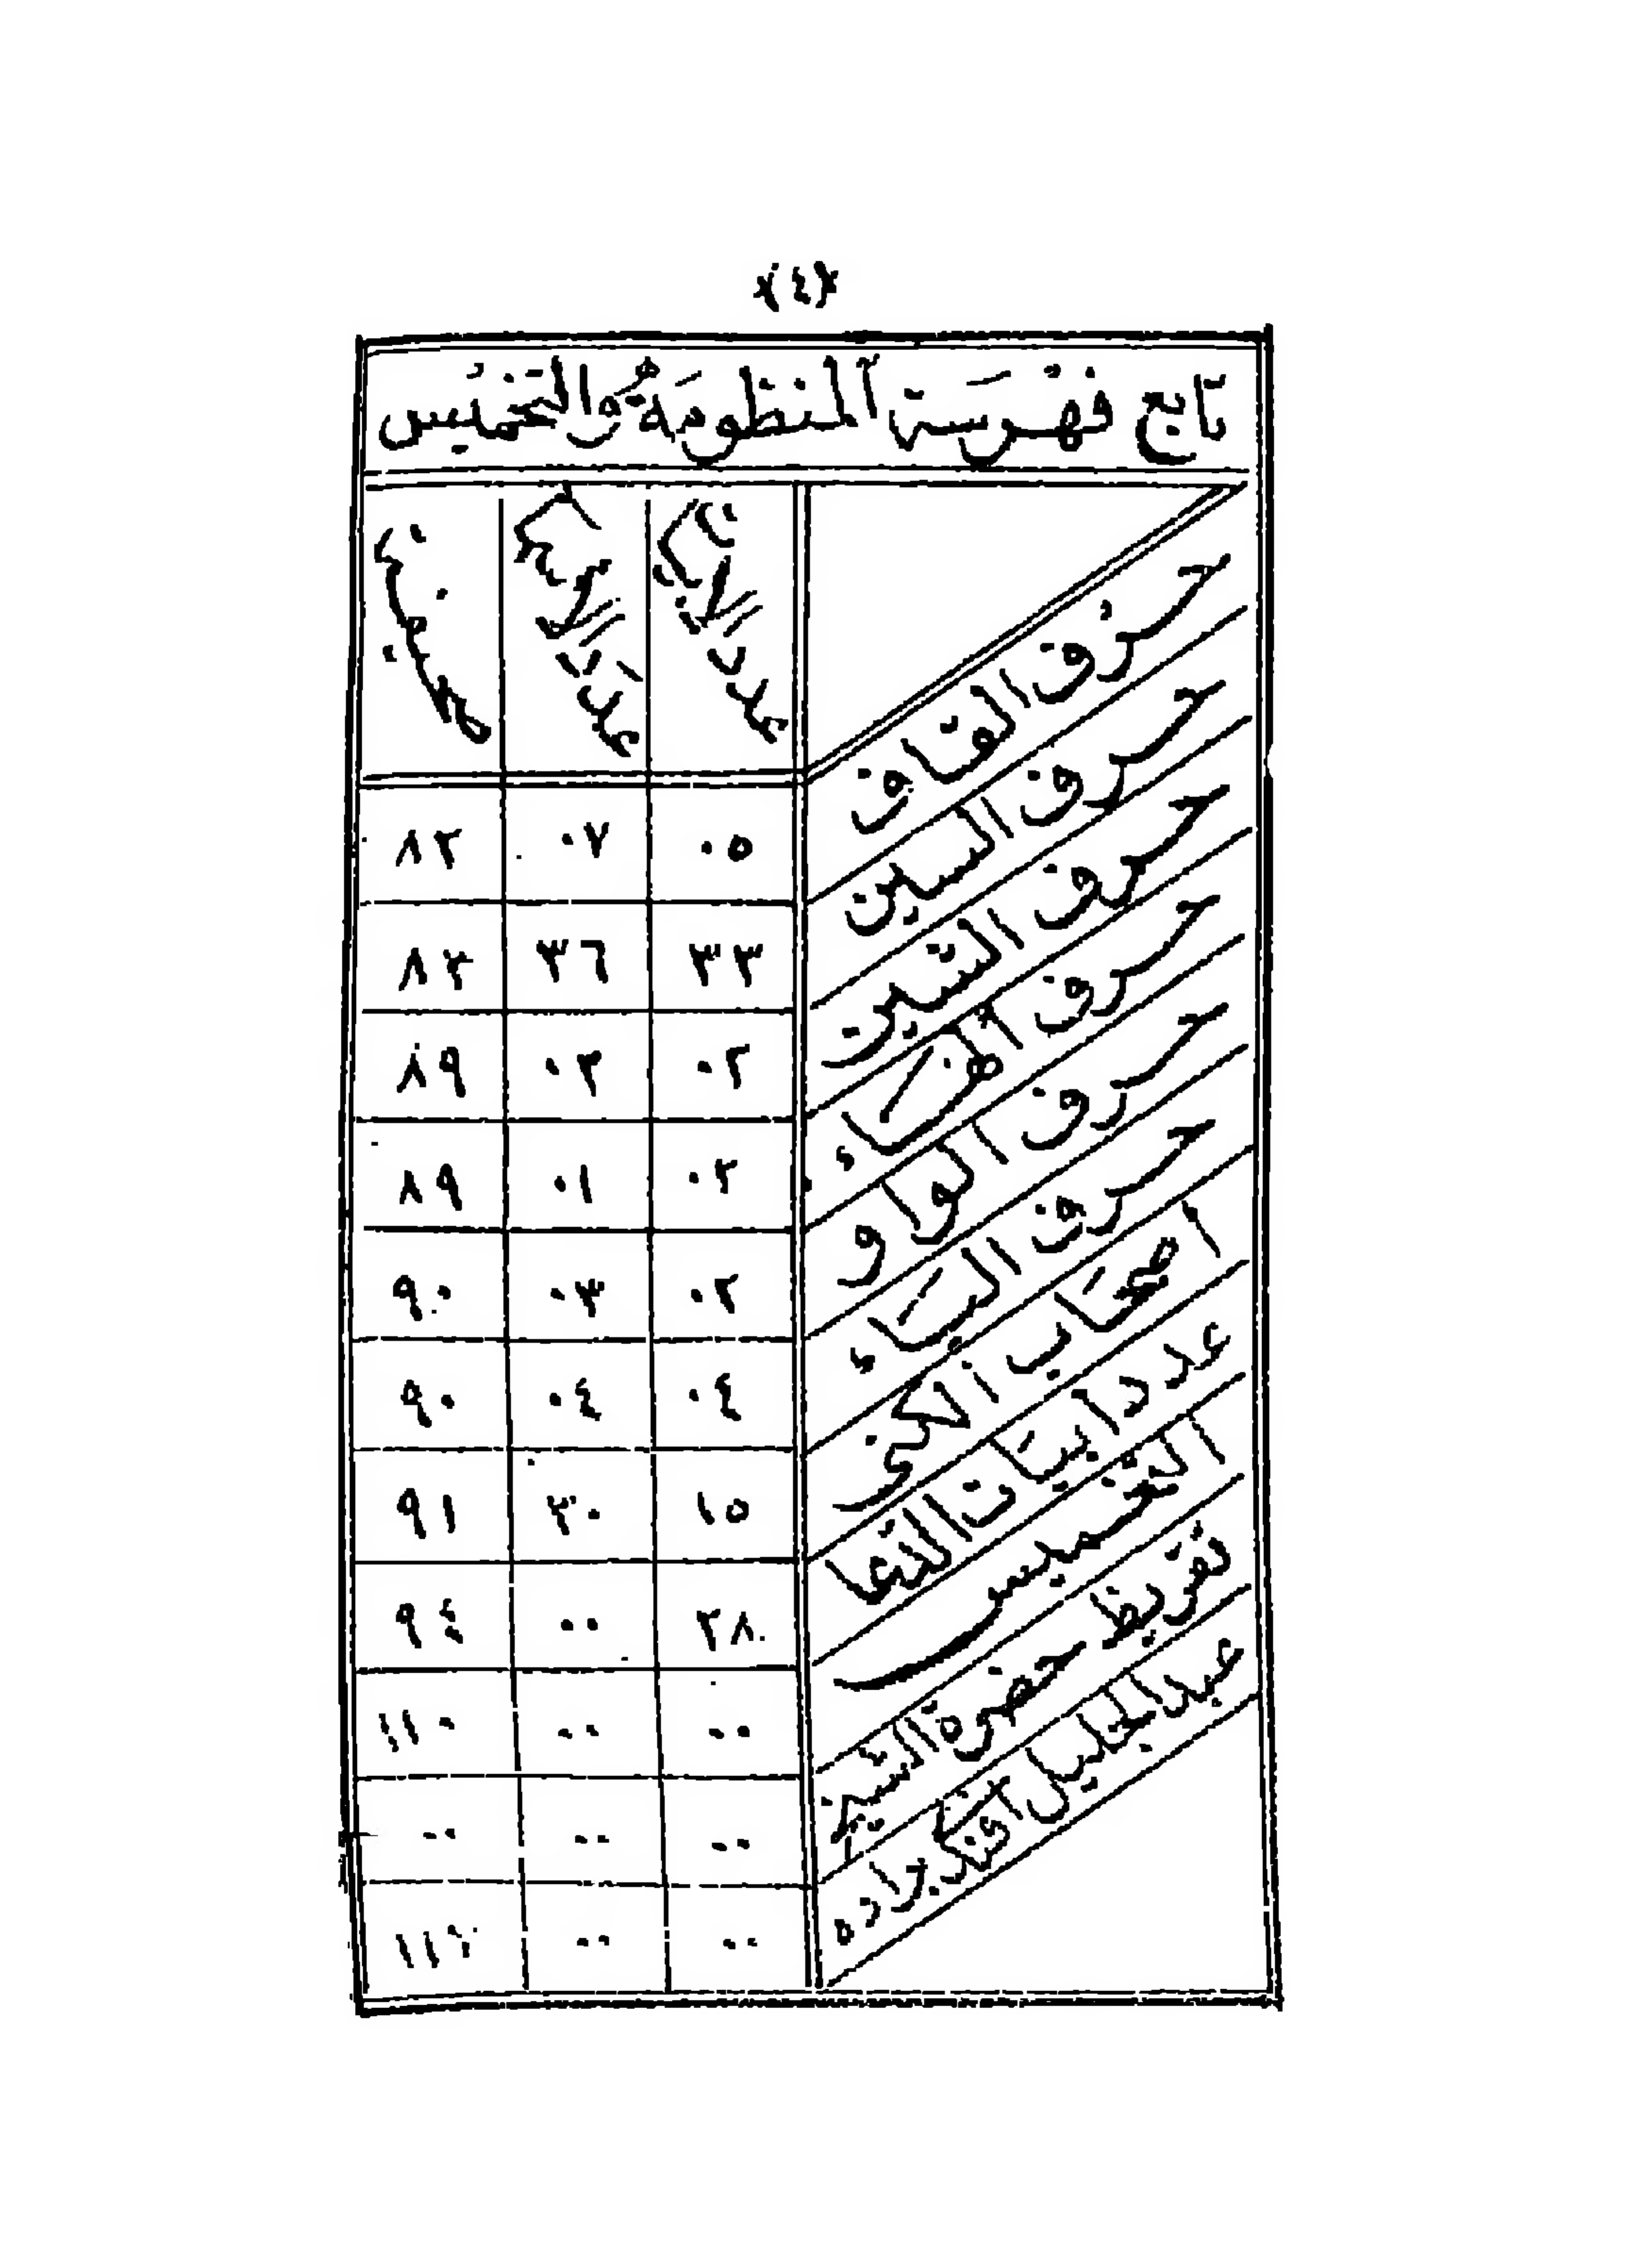 (٤)
تابع فهرسة المنظومة والتخميس
عدد الابيات عدد الصحابة صحيفة
حرف القاف ٠٥ ٠٧ ٨٢
حرف السين ٣٣ ٣٦ ٨٣
حرف الشين ٠٢ ٠٣ ٨٩
حرف الهاء ٠٢ ٠١ ٨٩
حرف الواو ٠٢ ٠٣ ٩٠
حرف الياء ٠٤ ٠٤ ٩٠
اصحاب الكنى ١٥ ٣٠ ٩١
عدد ابيات الدعا ٢٨ ٠٠ ٩٤
التخميس ٠٠ ٠٠ ١١٠
تقريظ حضرة الشيخ ٠٠ ٠٠ ٠٠
عبد الجليل افندى براده ٠٠ ٠٠